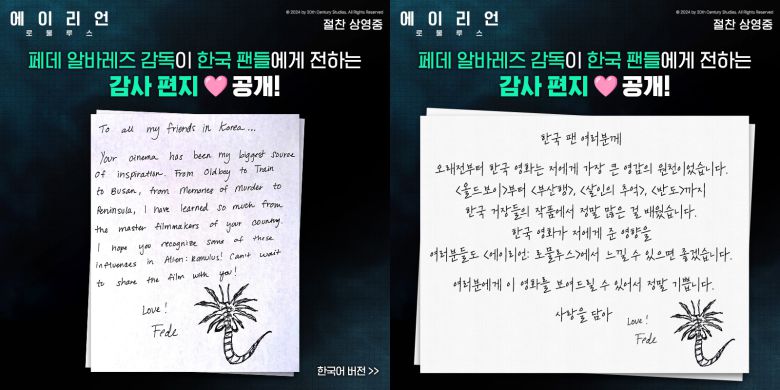 에이리언
로물루스
© 2024 by 20th Century Studies. All Rights Reserved
절찬 상영중
페데 알바레즈 감독이 한국 팬들에게 전하는
감사 편지 🩷 공개!
To all my friends in Korea...
Your cinema has been my biggest source
of inspiration. From Oldboy to Train
to Busan, from Memories of Murder to
Peninsula, I have learned so much from
the master filmmakers of your country.
I hope you recognize some of those
influences in Alien: Romulus! Can't wait
to share the film with you!
Love!
Fede
한국어 버전 >>
에이리언
로물루스
© 2024 by 20th Century Studies. All Rights Reserved
절찬 상영중
페데 알바레즈 감독이 한국 팬들에게 전하는
감사 편지 🩷 공개!
한국 팬 여러분께
오래전부터 한국 영화는 저에게 가장 큰 영감의 원천이었습니다.
<올드보이>부터 <부산행>, <살인의 추억>, <반도>까지
한국 거장들의 작품에서 정말 많은 걸 배웠습니다.
한국 영화가 저에게 준 영향을
여러분들도 <에이리언: 로물루스>에서 느낄 수 있으면 좋겠습니다.
여러분에게 이 영화를 보여드릴 수 있어서 정말 기쁩니다.
사랑을 담아
Love!
Fede